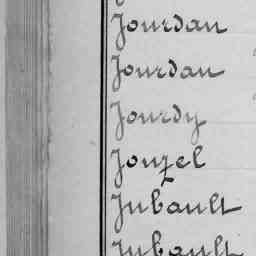 Jourdan
Jourdan
Jourdy
Jouzel
Jubault
Jubault